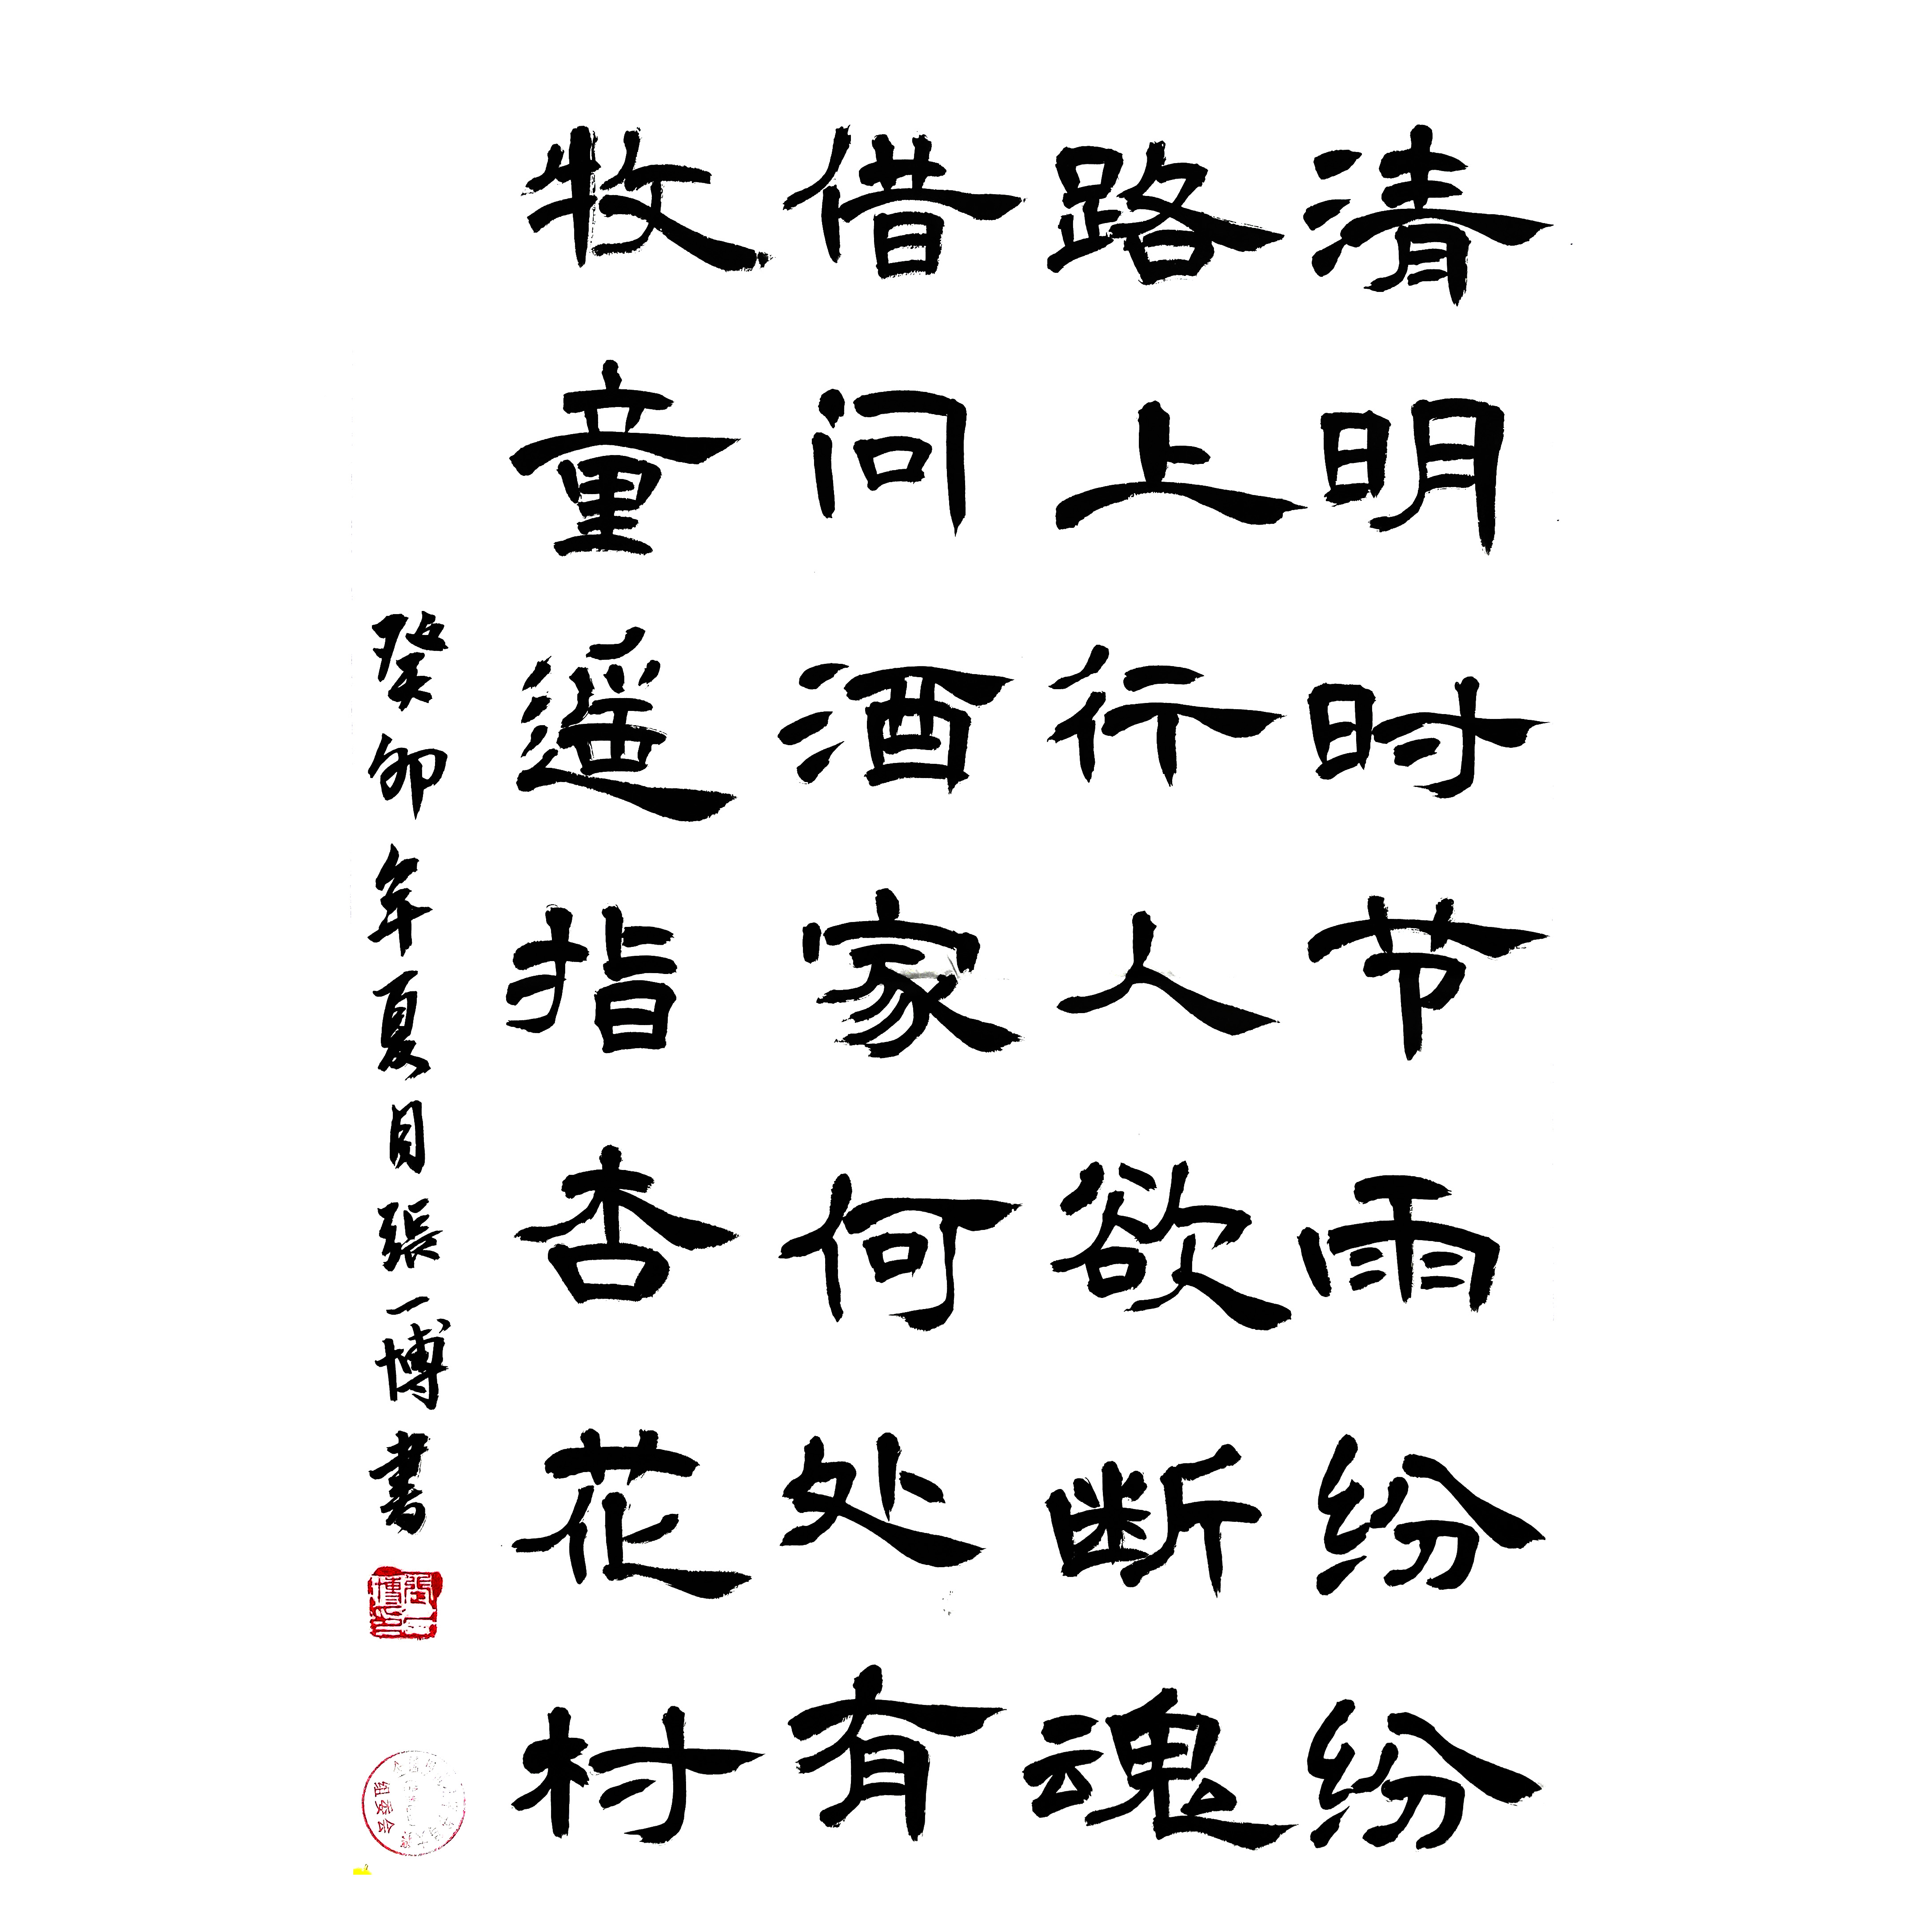 清明时节雨纷纷
路上行人欲断魂
借问酒家何处有
牧童遥指杏花村
癸卯年夏月張一博書
張一博印
组委会